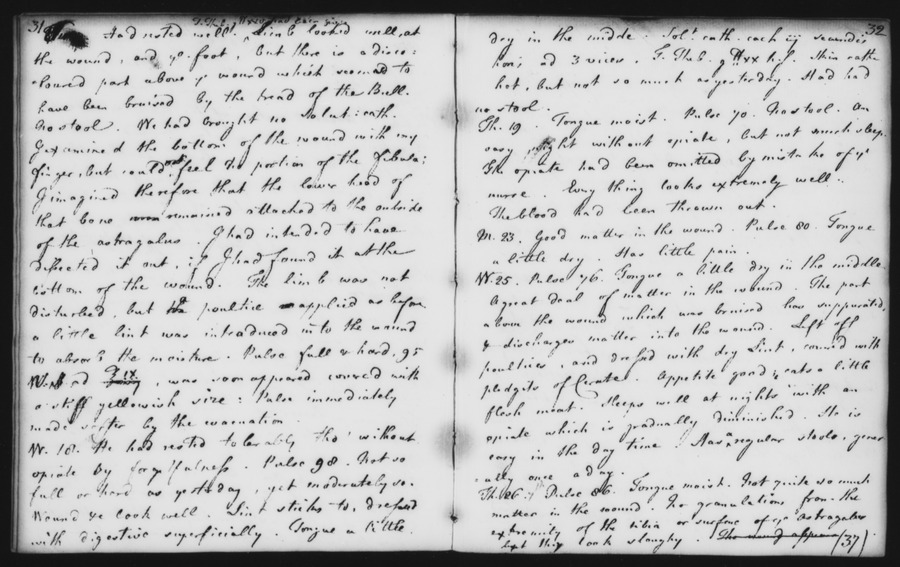 31
Had rested well. Limb looked well, at
the wound, and ye foot, but there is a disco:
:loured part above ye wound which seemed to
have been bruised by the tread of the Bull.
No stool. We had brought no Solut: cath.
I examined the bottom of the wound with my
finger, but could not feel the portion of the fibula:
I imagined therefore that the lower head of
that bone remained attached to the outside
of the astragalus. I had intended to have
dissected it out, if I had found it at the
bottom of the wound. The limb was not
disturbed, but the poultice applied as before
a little lint was introduced into the wound
to absorb the moisture. Pulse full & hard, 95
ad ℥ix, was soon appeared covered with
a stiff yellowish size: Pulse immediately
made softer by the evacuation.
W. 18. He had rested tolerably tho' without
opiate by forgetfulness. Pulse 98. Not so
full or hard as yesterday, yet moderately so.
Wound &c look well. Lint sticks to, dressed
with digestive superficially. Tongue a little
32
dry in the middle. Solt. cath. coch iij secundis
horis ad 3 vices. T. Theb. gttxx h.s. Skin rathr
hot, but not so much as yesterday. Had had
no stool.
Th. 19. Tongue moist. Pulse 70. No stool. An
easy night without opiate, but not much sleep.
The opiate had been omitted by mistake of ye
nurse. Every thing looks extremely well.
The blood had been thrown out.
M. 23. Good matter in the wound. Pulse 80. Tongue
a little dry. Has little pain.
W. 25. Pulse 76. Tongue a little dry in the middle.
A great deal of matter in the wound. The part
above the wound which was bruised has suppurated,
& discharges matter into the wound. Left off
poultices, and dressed with dry Lint, covered with
pledgits of Cerate. Appetite good & eats a little
flesh meat. Sleeps well at nights with an
opiate which is gradually diminished. He is
easy in the day time. Has regular stools, gener
:ally once a day.
Th. 26. Pulse 86. Tongue moist. Not quite so much
matter in the wound. No granulations from the
extremity of the tibia or surface of ye astragalus
but they look sloughy. The wound appears (37)